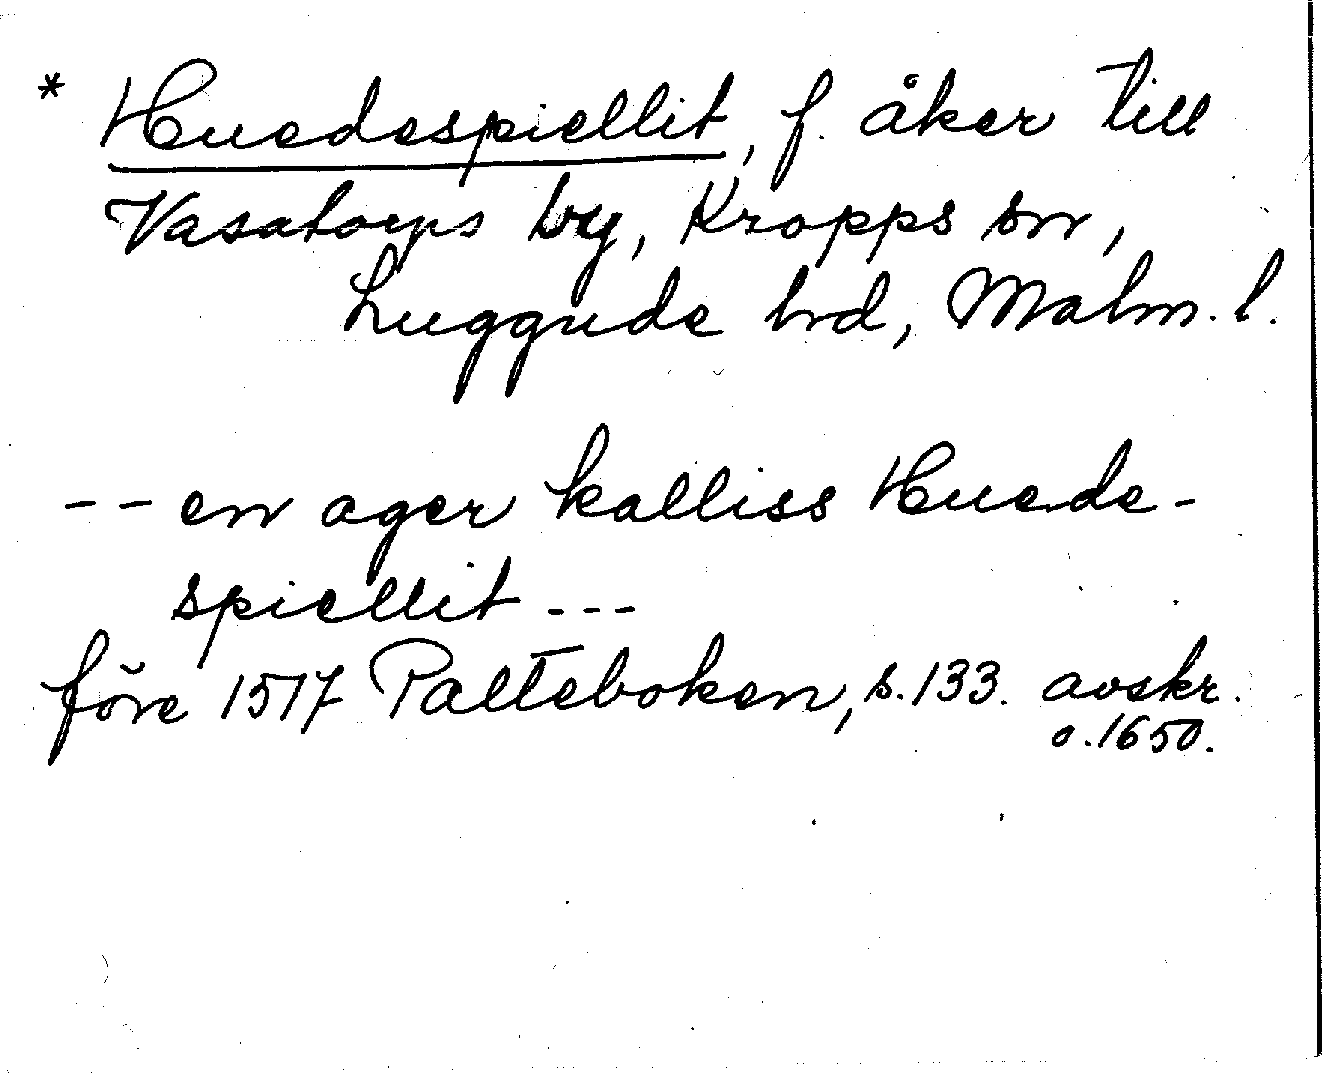 * Huedespiellit, f. åker till
Vasatorps by, Kropps sn,
Luggude hd, Malm. l.
-- en ager kalliss Huede-
spiellit ---
före 1517 Palteboken, s. 133. avskr.
o. 1650.